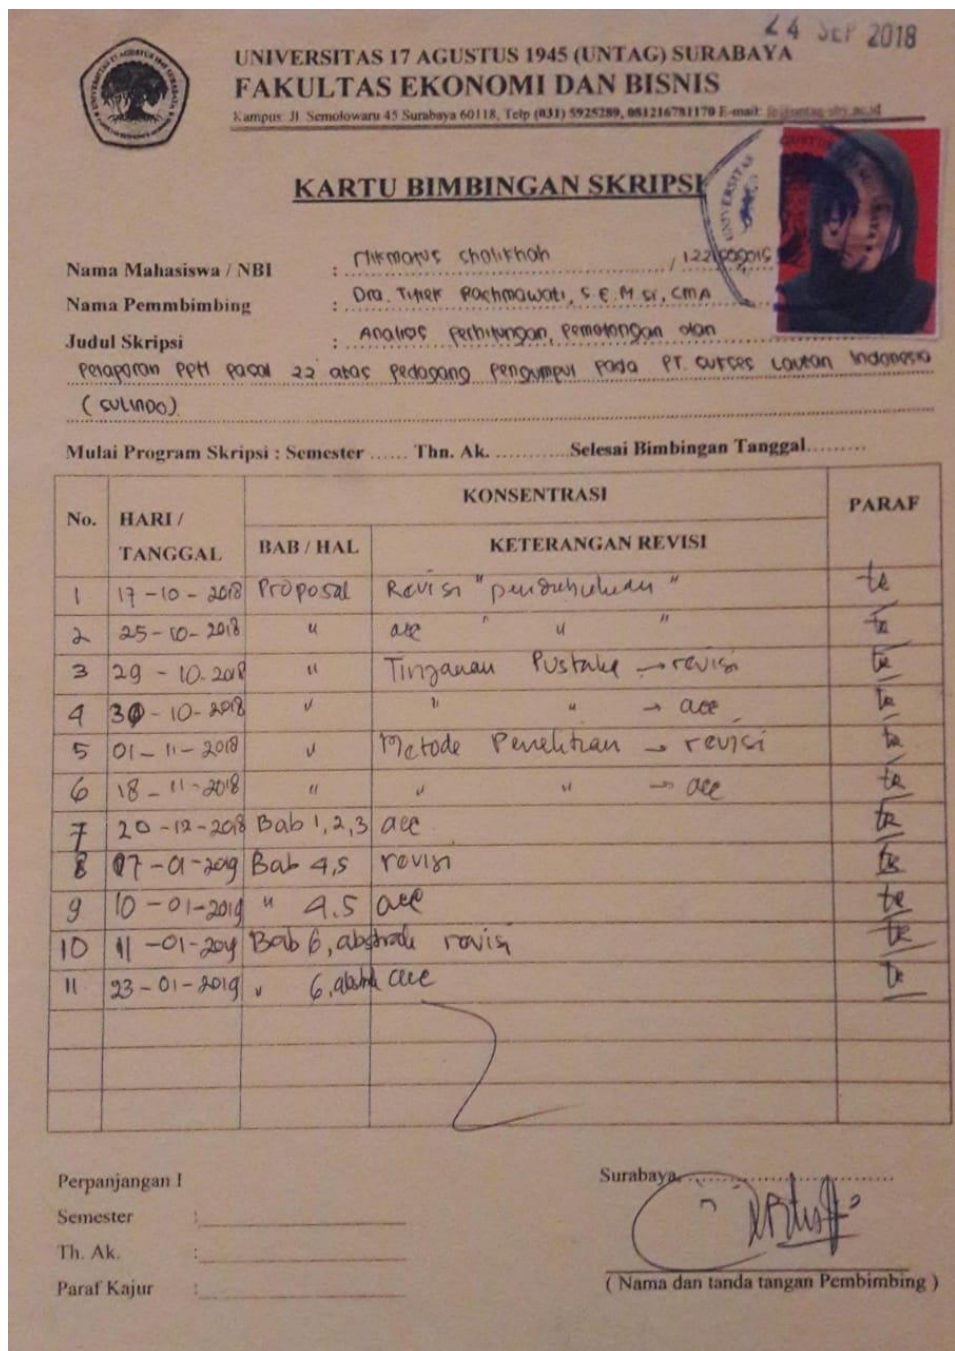 24 SEP 2018
UNIVERSITAS 17 AGUSTUS 1945 (UNTAG) SURABAYA
FAKULTAS EKONOMI DAN BISNIS
Kampus Jl. Semolowaru 45 Surabaya 60118, Telp (031) 5925289, 081216781170 E-mail:
KARTU BIMBINGAN SKRIPSI
UNIVERSITAS
Nama Mahasiswa / NBI : Cholikhah /
Nama Pemmbimbing : Dra. Titiek Rachmawati, S.E, M.Si, CMA
Judul Skripsi : Analisis Perhitungan, Pemotongan dan
Pelaporan PPH Pasal 22 atas Pedagang Pengumpul Pada PT. Sukses Lautan Indonesia
( SULINDO)
Mulai Program Skripsi : Semester ...... Thn. Ak. ............Selesai Bimbingan Tanggal.........
No. HARI / TANGGAL KONSENTRASI PARAF
BAB / HAL KETERANGAN REVISI
1 17-10-2018 Proposal Revisi "pendahuluan"
2 25-10-2018 " acc " " "
3 29-10-2018 " Tinjauan Pustaka → revisi
4 30-10-2018 " " " → acc
5 01-11-2018 " Metode Penelitian → revisi
6 18-11-2018 " " " → acc
7 20-12-2018 Bab 1,2,3 acc
8 07-01-2019 Bab 4,5 revisi
9 10-01-2019 " 4.5 acc
10 11-01-2019 Bab 6, abstrak revisi
11 23-01-2019 " 6, abstrak acc
Perpanjangan I
Semester :
Th. Ak. :
Paraf Kajur :
Surabaya, ..............................
( Nama dan tanda tangan Pembimbing )